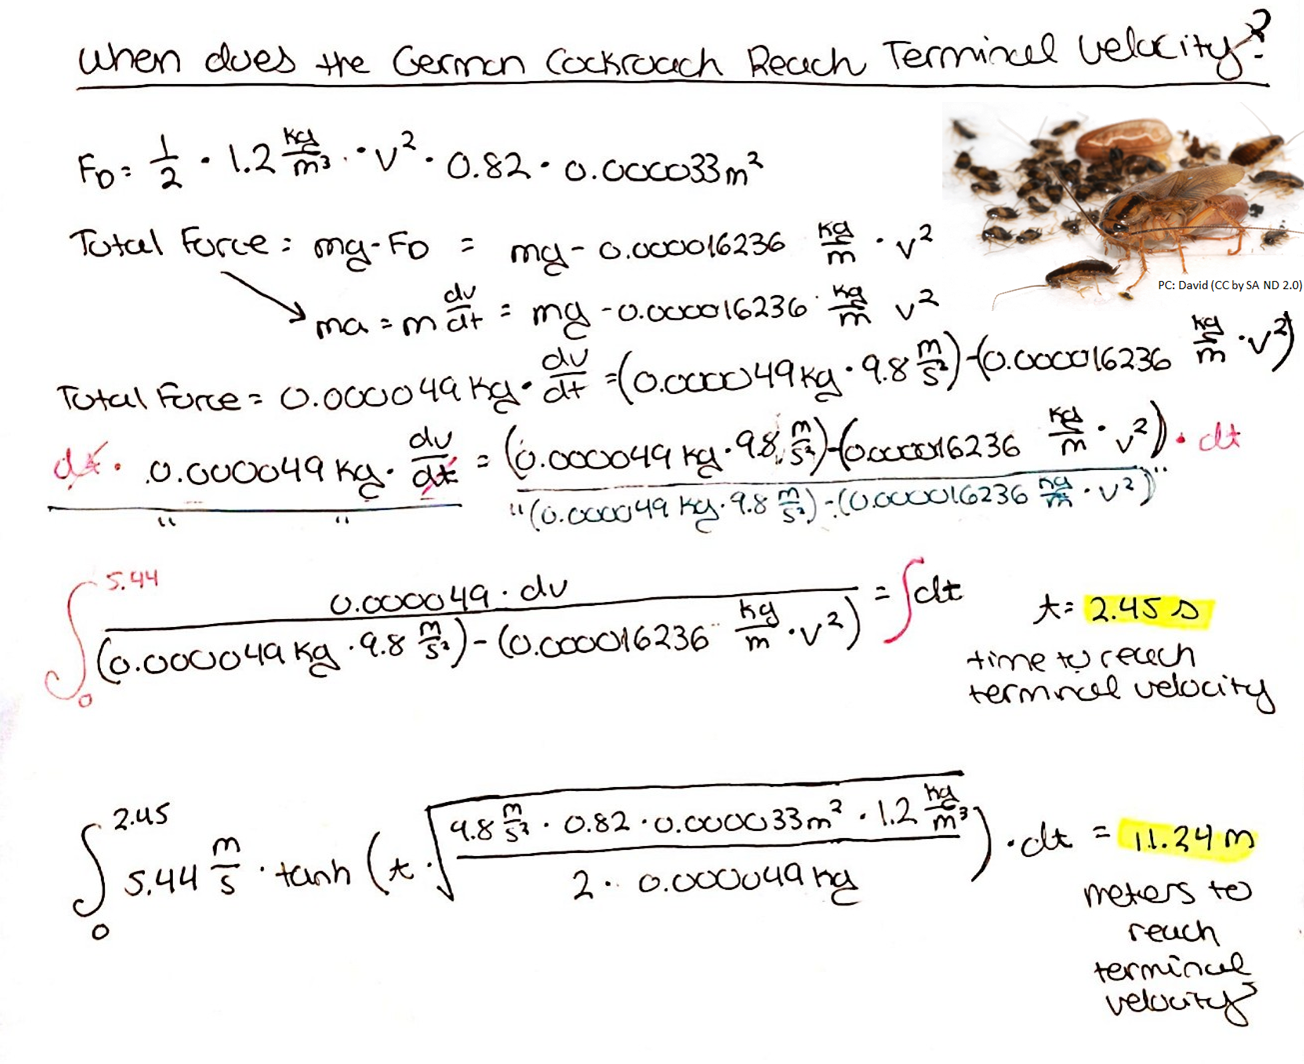 When does the German Cockroach Reach Terminal Velocity?
F_D = 1/2 · 1.2 kg/m³ · v² · 0.82 · 0.000033 m²
PC: David (CC by SA ND 2.0)
Total Force = mg - F_D = mg - 0.000016236 kg/m · v²
ma = m dv/dt = mg - 0.000016236 kg/m v²
Total Force = 0.000049 kg · dv/dt = (0.000049 kg · 9.8 m/s²) - (0.000016236 kg/m · v²)
dt · 0.000049 kg · dv/dt = (0.000049 kg · 9.8 m/s²) - (0.000016236 kg/m · v²) · dt
" " "(0.000049 kg · 9.8 m/s²) - (0.000016236 kg/m · v²)"
∫₀^5.44 0.000049 · dv / (0.000049 kg · 9.8 m/s²) - (0.000016236 kg/m · v²) = ∫dt
t = 2.45 s
time to reach
terminal velocity
∫₀^2.45 5.44 m/s · tanh (t · √(9.8 m/s² · 0.82 · 0.000033 m² · 1.2 kg/m³ / 2 · 0.000049 kg)) · dt = 11.24 m
meters to
reach
terminal
velocity